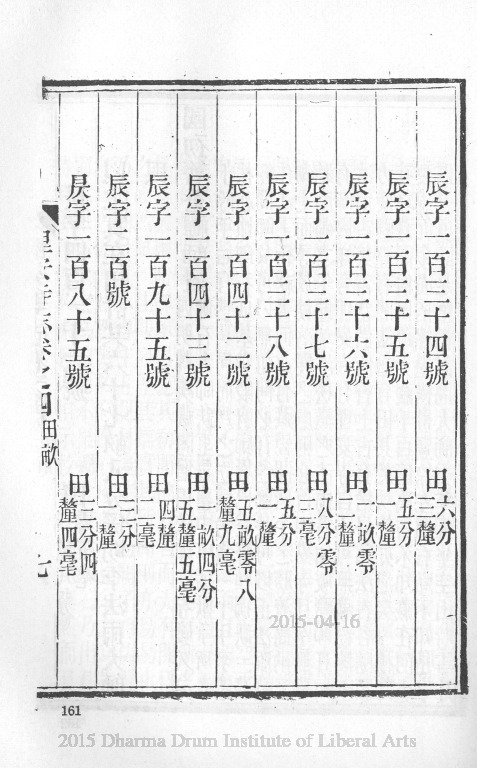 辰字一百三十四號 田六分三釐
辰字一百三十五號 田五分一釐
辰字一百三十六號 田一畝零二釐
辰字一百三十七號 田八分零三毫
辰字一百三十八號 田五分一釐
辰字一百四十二號 田五畝零八釐九毫
辰字一百四十三號 田一畝四分五釐五毫
辰字一百九十五號 田四釐二毫
辰字二百號 田三分一釐
昃字一百八十五號 田三分四釐四毫
寺志卷之四 田畝 七
161
2015-04-16
2015 Dharma Drum Institute of Liberal Arts